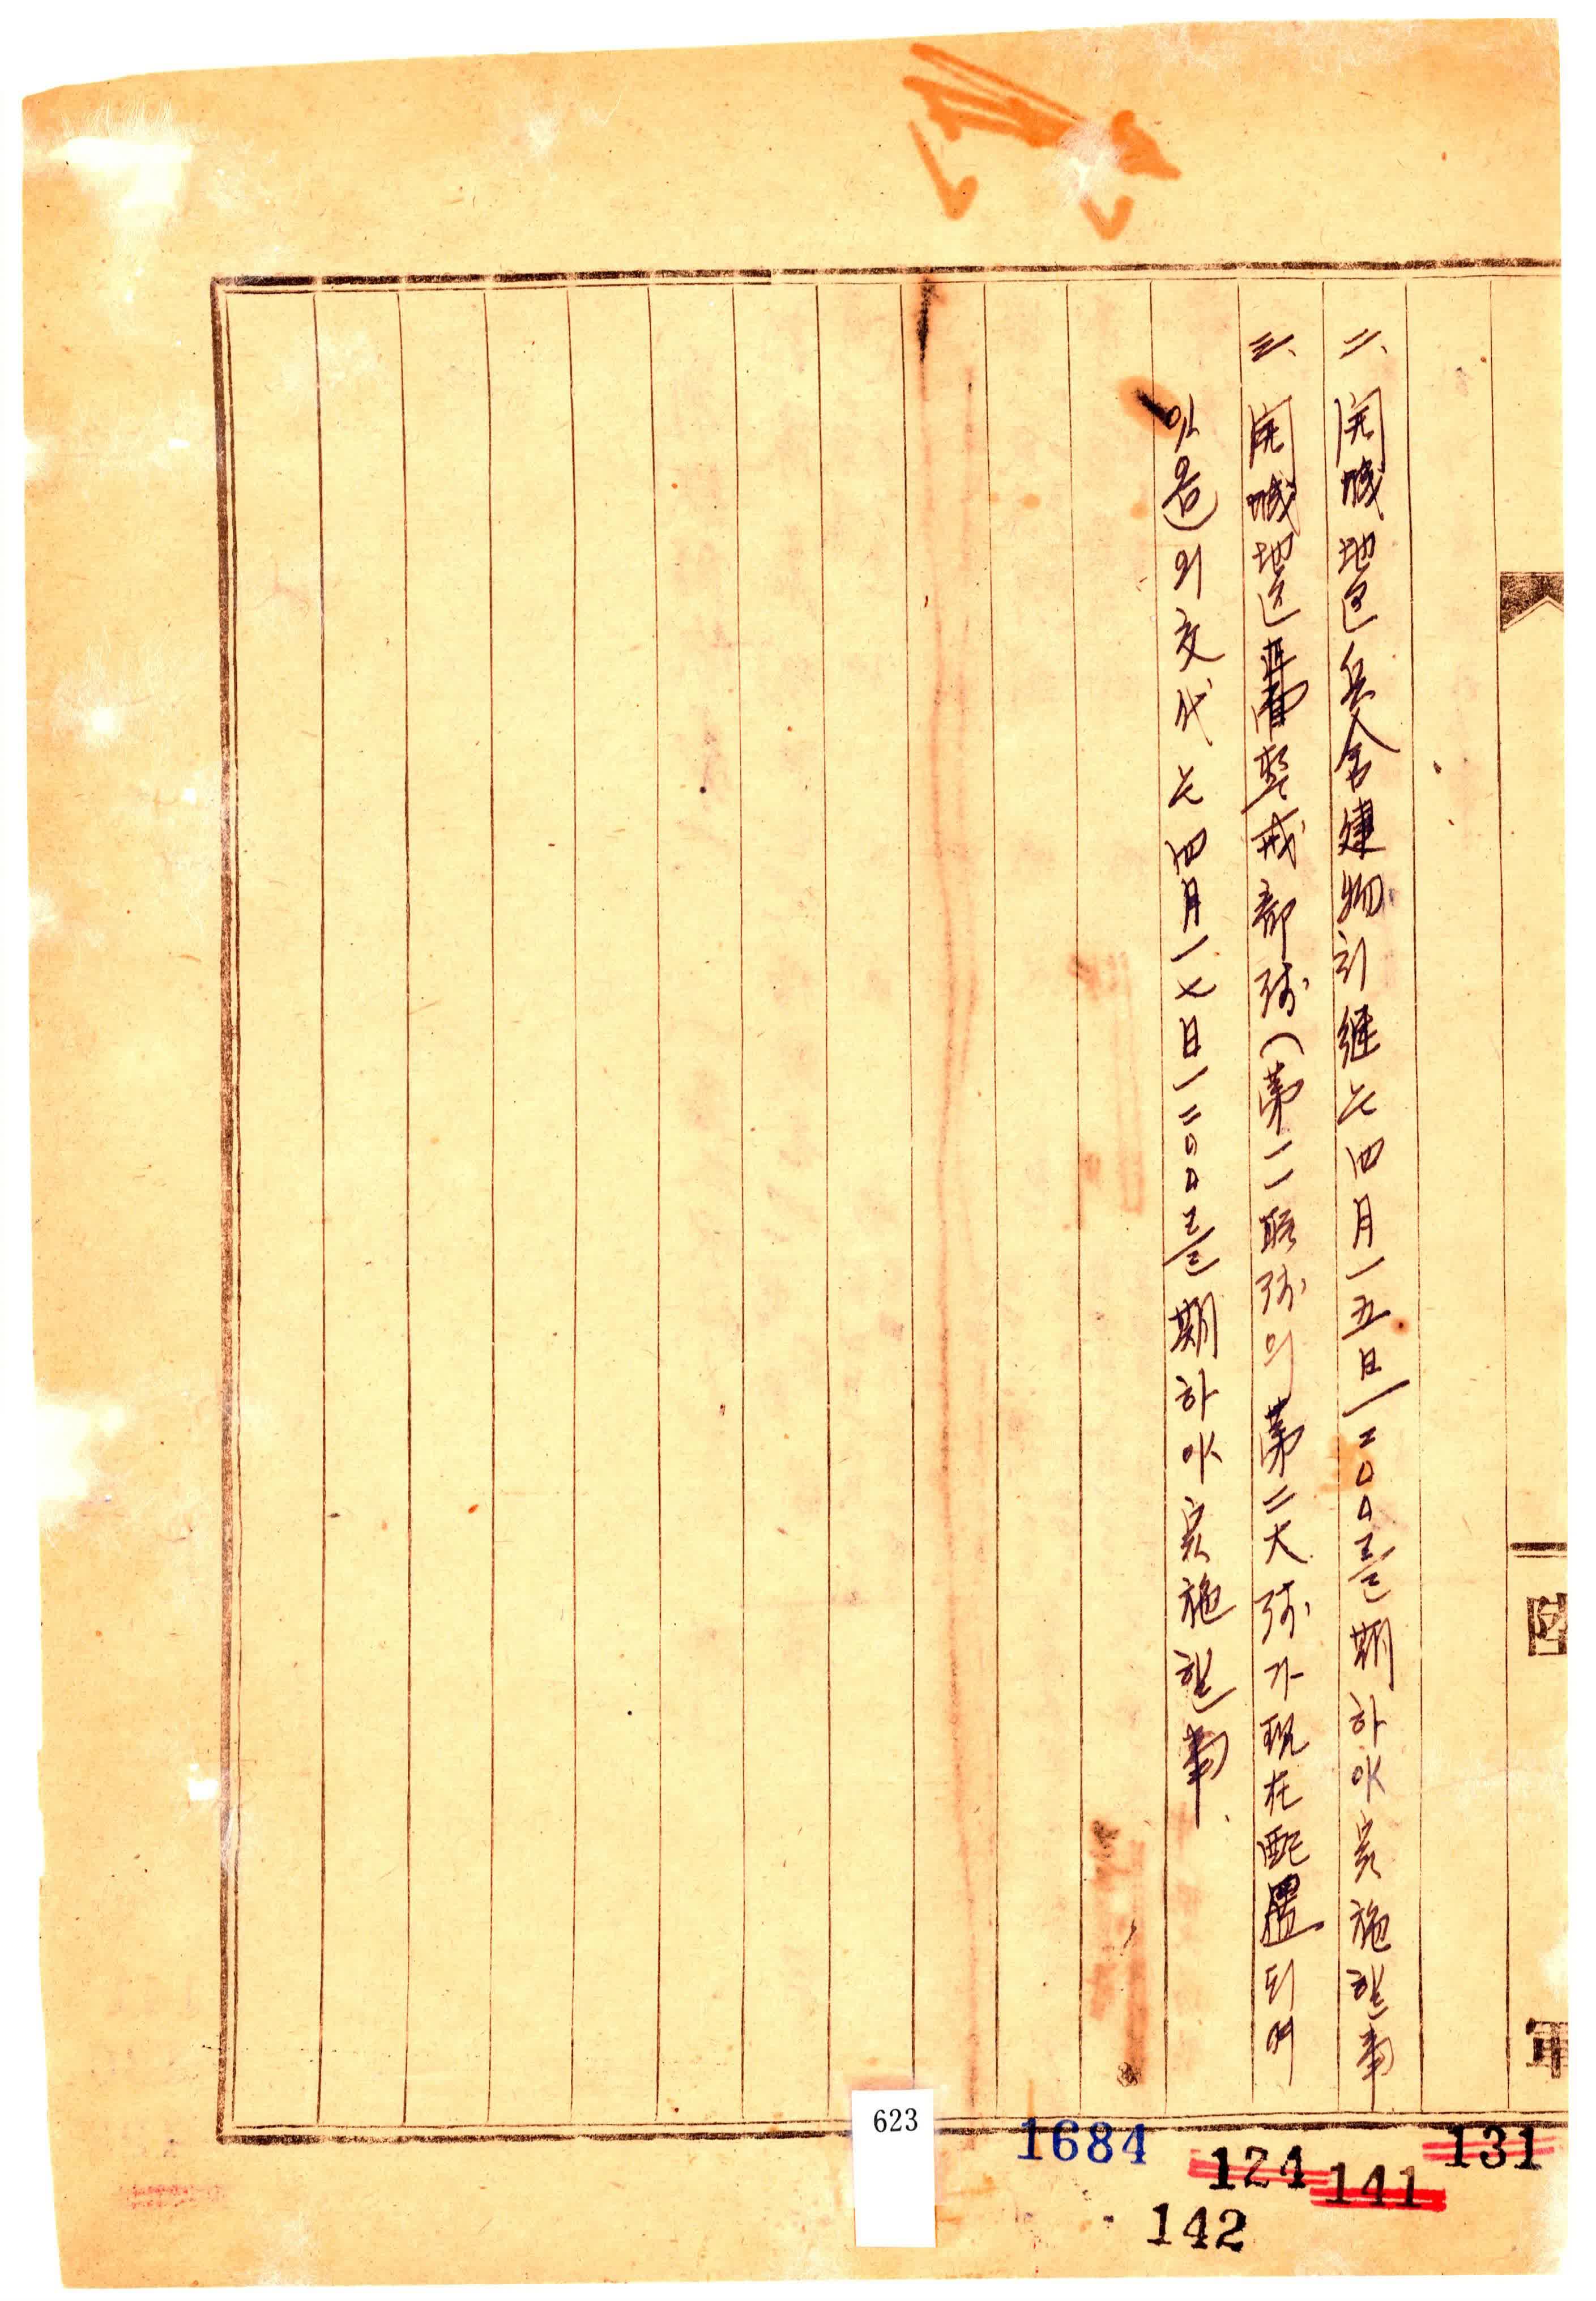 二、開城地区兵舍建物引継는四月一五日一二〇〇를期하야実施할事
三、開城地区警戒部隊(第一一聯隊의第二大隊가現在配置되여
있음)의交代는四月一七日一二〇〇를期하야実施할事
陸
軍
623
1684
124
141
131
142